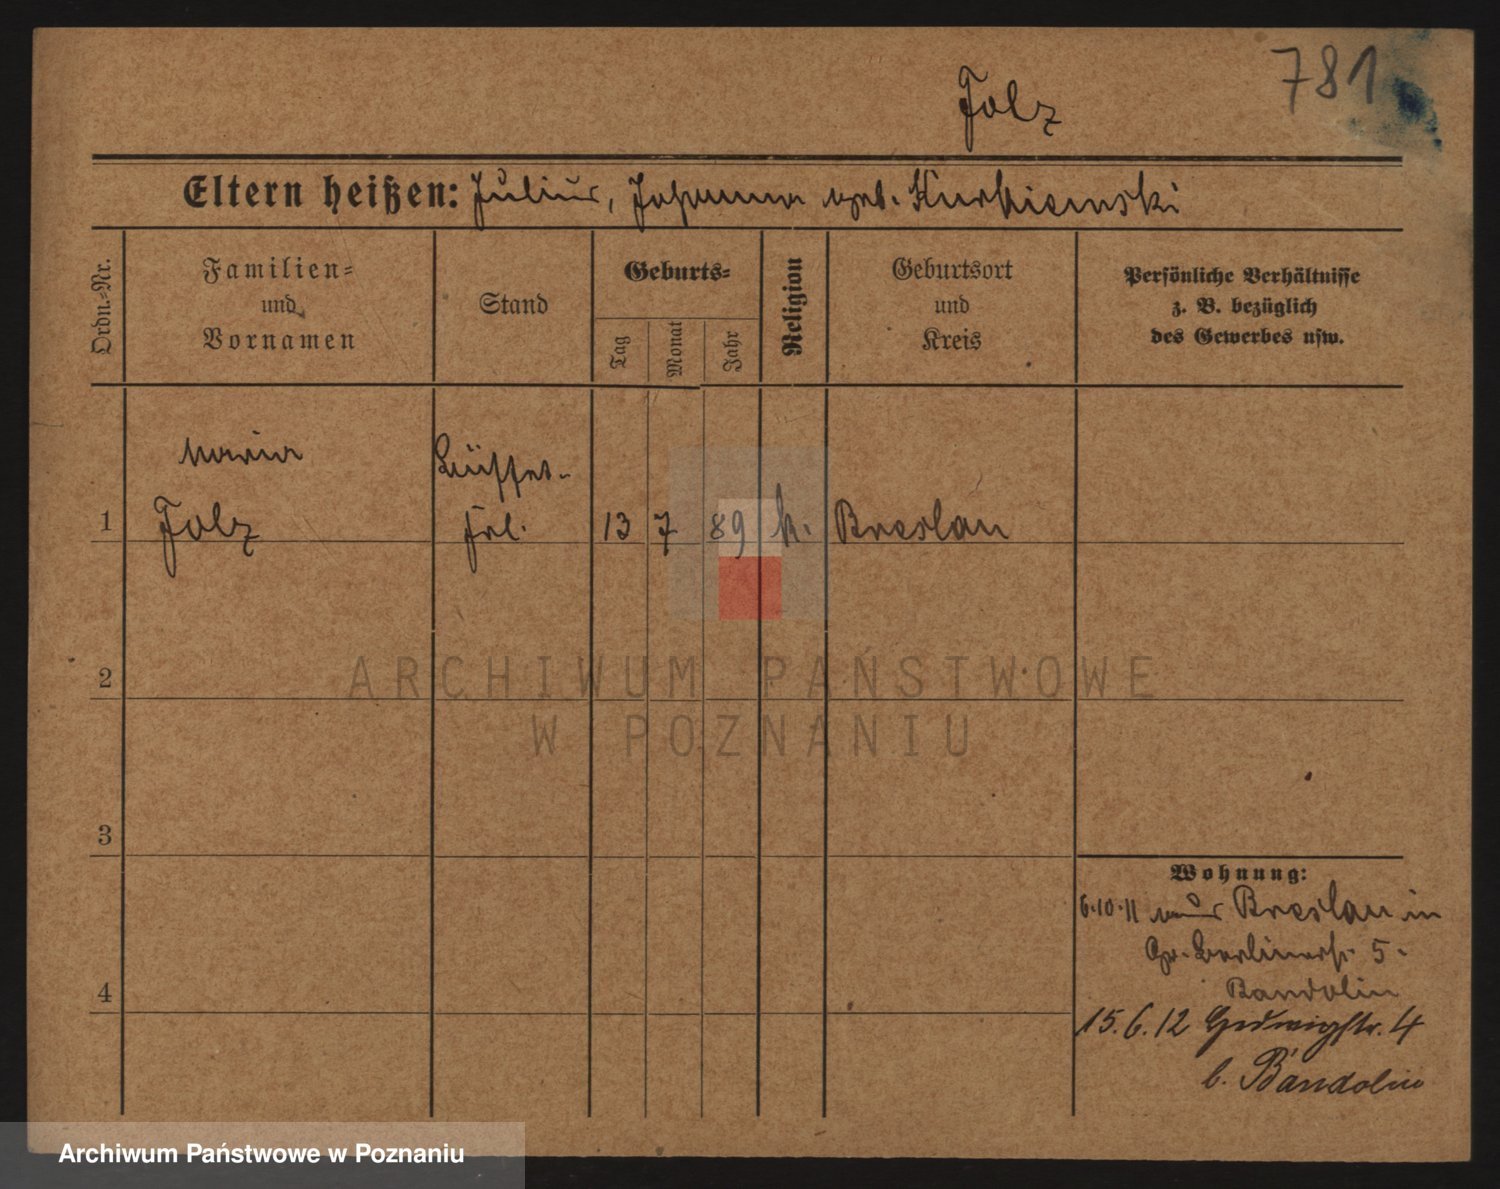 781
Folz
Eltern heißen: Julius, Johanna geb. Kurkiewski
Ordn.=Nr.
Familien=
und
Vornamen
Stand
Geburts=
Tag
Monat
Jahr
Religion
Geburtsort
und
Kreis
Persönliche Verhältnisse
z. B. bezüglich
des Gewerbes usw.
Maria Büffet-
1 Folz frl. 13 7 89 k. Breslau
2
ARCHIWUM PAŃSTWOWE
W POZNANIU
3
Wohnung:
6.10.11 aus Breslau in
Gr. Berlinerstr. 5.
4
Bandolin
15.6.12 Hedwigstr. 4
b. Bandolin
Archiwum Państwowe w Poznaniu